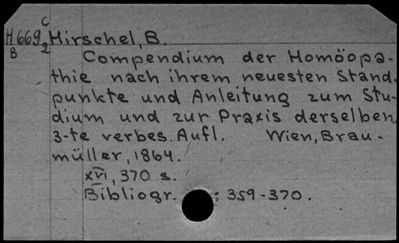 C
H669 Mirschel, B.
B 2
Compendium der Homöopa-
thie nach ihrem neuesten Stand-
punkte und Anleitung zum Stu-
dium und zur Praxis derselben.
3-te verbes. Aufl. Wien, Brau-
müller, 1864.
XVI, 370 s.
Bibliogr. : 359-370.